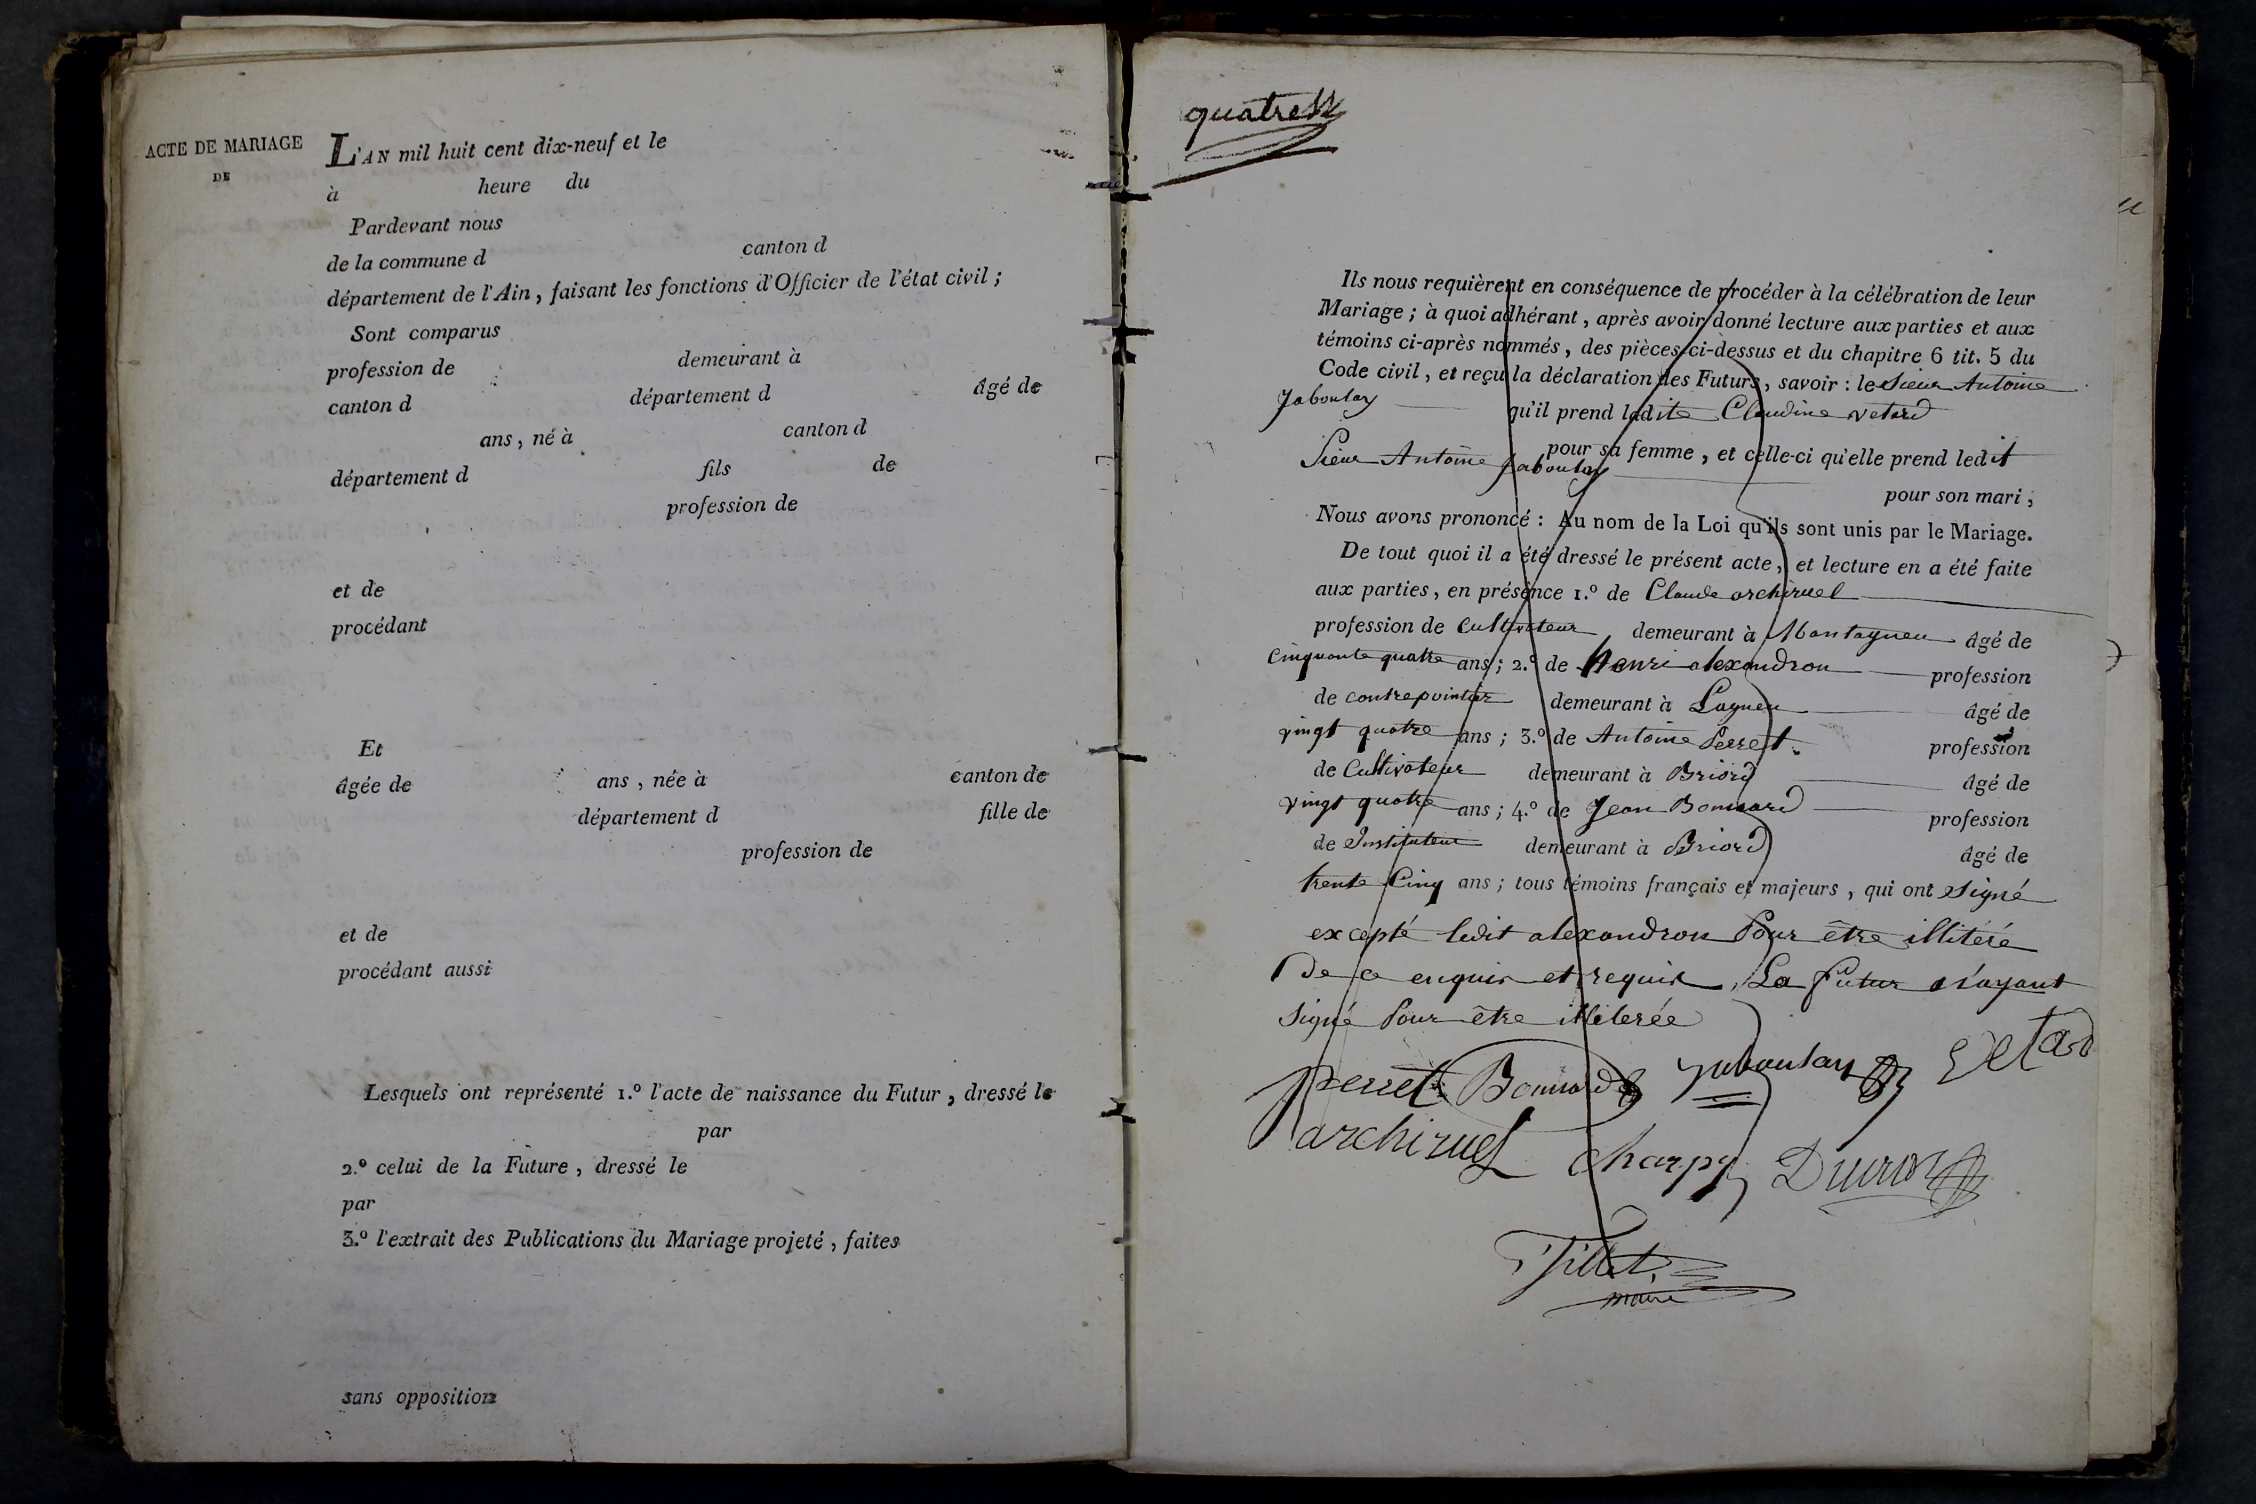 ACTE DE MARIAGE
DE
L'AN mil huit cent dix-neuf et le
à heure du
Pardevant nous
de la commune d canton d
département de l'Ain, faisant les fonctions d'Officier de l'état civil ;
Sont comparus
profession de demeurant à
canton d département d âgé de
ans, né à canton d
département d fils de
profession de
et de
procédant
Et
âgée de ans, née à canton de
département d fille de
profession de
et de
procédant aussi
Lesquels ont représenté 1.º l'acte de naissance du Futur, dressé le
par
2.º celui de la Future, dressé le
par
3.º l'extrait des Publications du Mariage projeté, faites
sans opposition
quatre
Ils nous requièrent en conséquence de procéder à la célébration de leur
Mariage ; à quoi adhérant, après avoir donné lecture aux parties et aux
témoins ci-après nommés, des pièces ci-dessus et du chapitre 6 tit. 5 du
Code civil, et reçu la déclaration des Futurs, savoir : le Sieur Antoine
Jaboulay qu'il prend ladite Claudine vetard
pour sa femme, et celle-ci qu'elle prend ledit
Sieur Antoine Jaboulay
pour son mari ;
Nous avons prononcé : Au nom de la Loi qu'ils sont unis par le Mariage.
De tout quoi il a été dressé le présent acte, et lecture en a été faite
aux parties, en présence 1.º de Claude archiruel
profession de Cultivateur demeurant à Montagneu âgé de
Cinquante quatre ans ; 2.º de Henri alexandron profession
de contrepointier demeurant à Lagneu âgé de
vingt quatre ans ; 3.º de Antoine Perret profession
de Cultivateur demeurant à Briord âgé de
vingt quatre ans ; 4.º de Jean Bonnard profession
de Instituteur demeurant à Briord âgé de
trente Cinq ans ; tous témoins français et majeurs, qui ont signé
excepté ledit alexandron Pour être illitéré
De ce enquis et requis, La Futur n'ayant
signé Pour être illiterée
perret Bonnard Jaboulay Vetard
archiruel Charpy
Tillet
maire